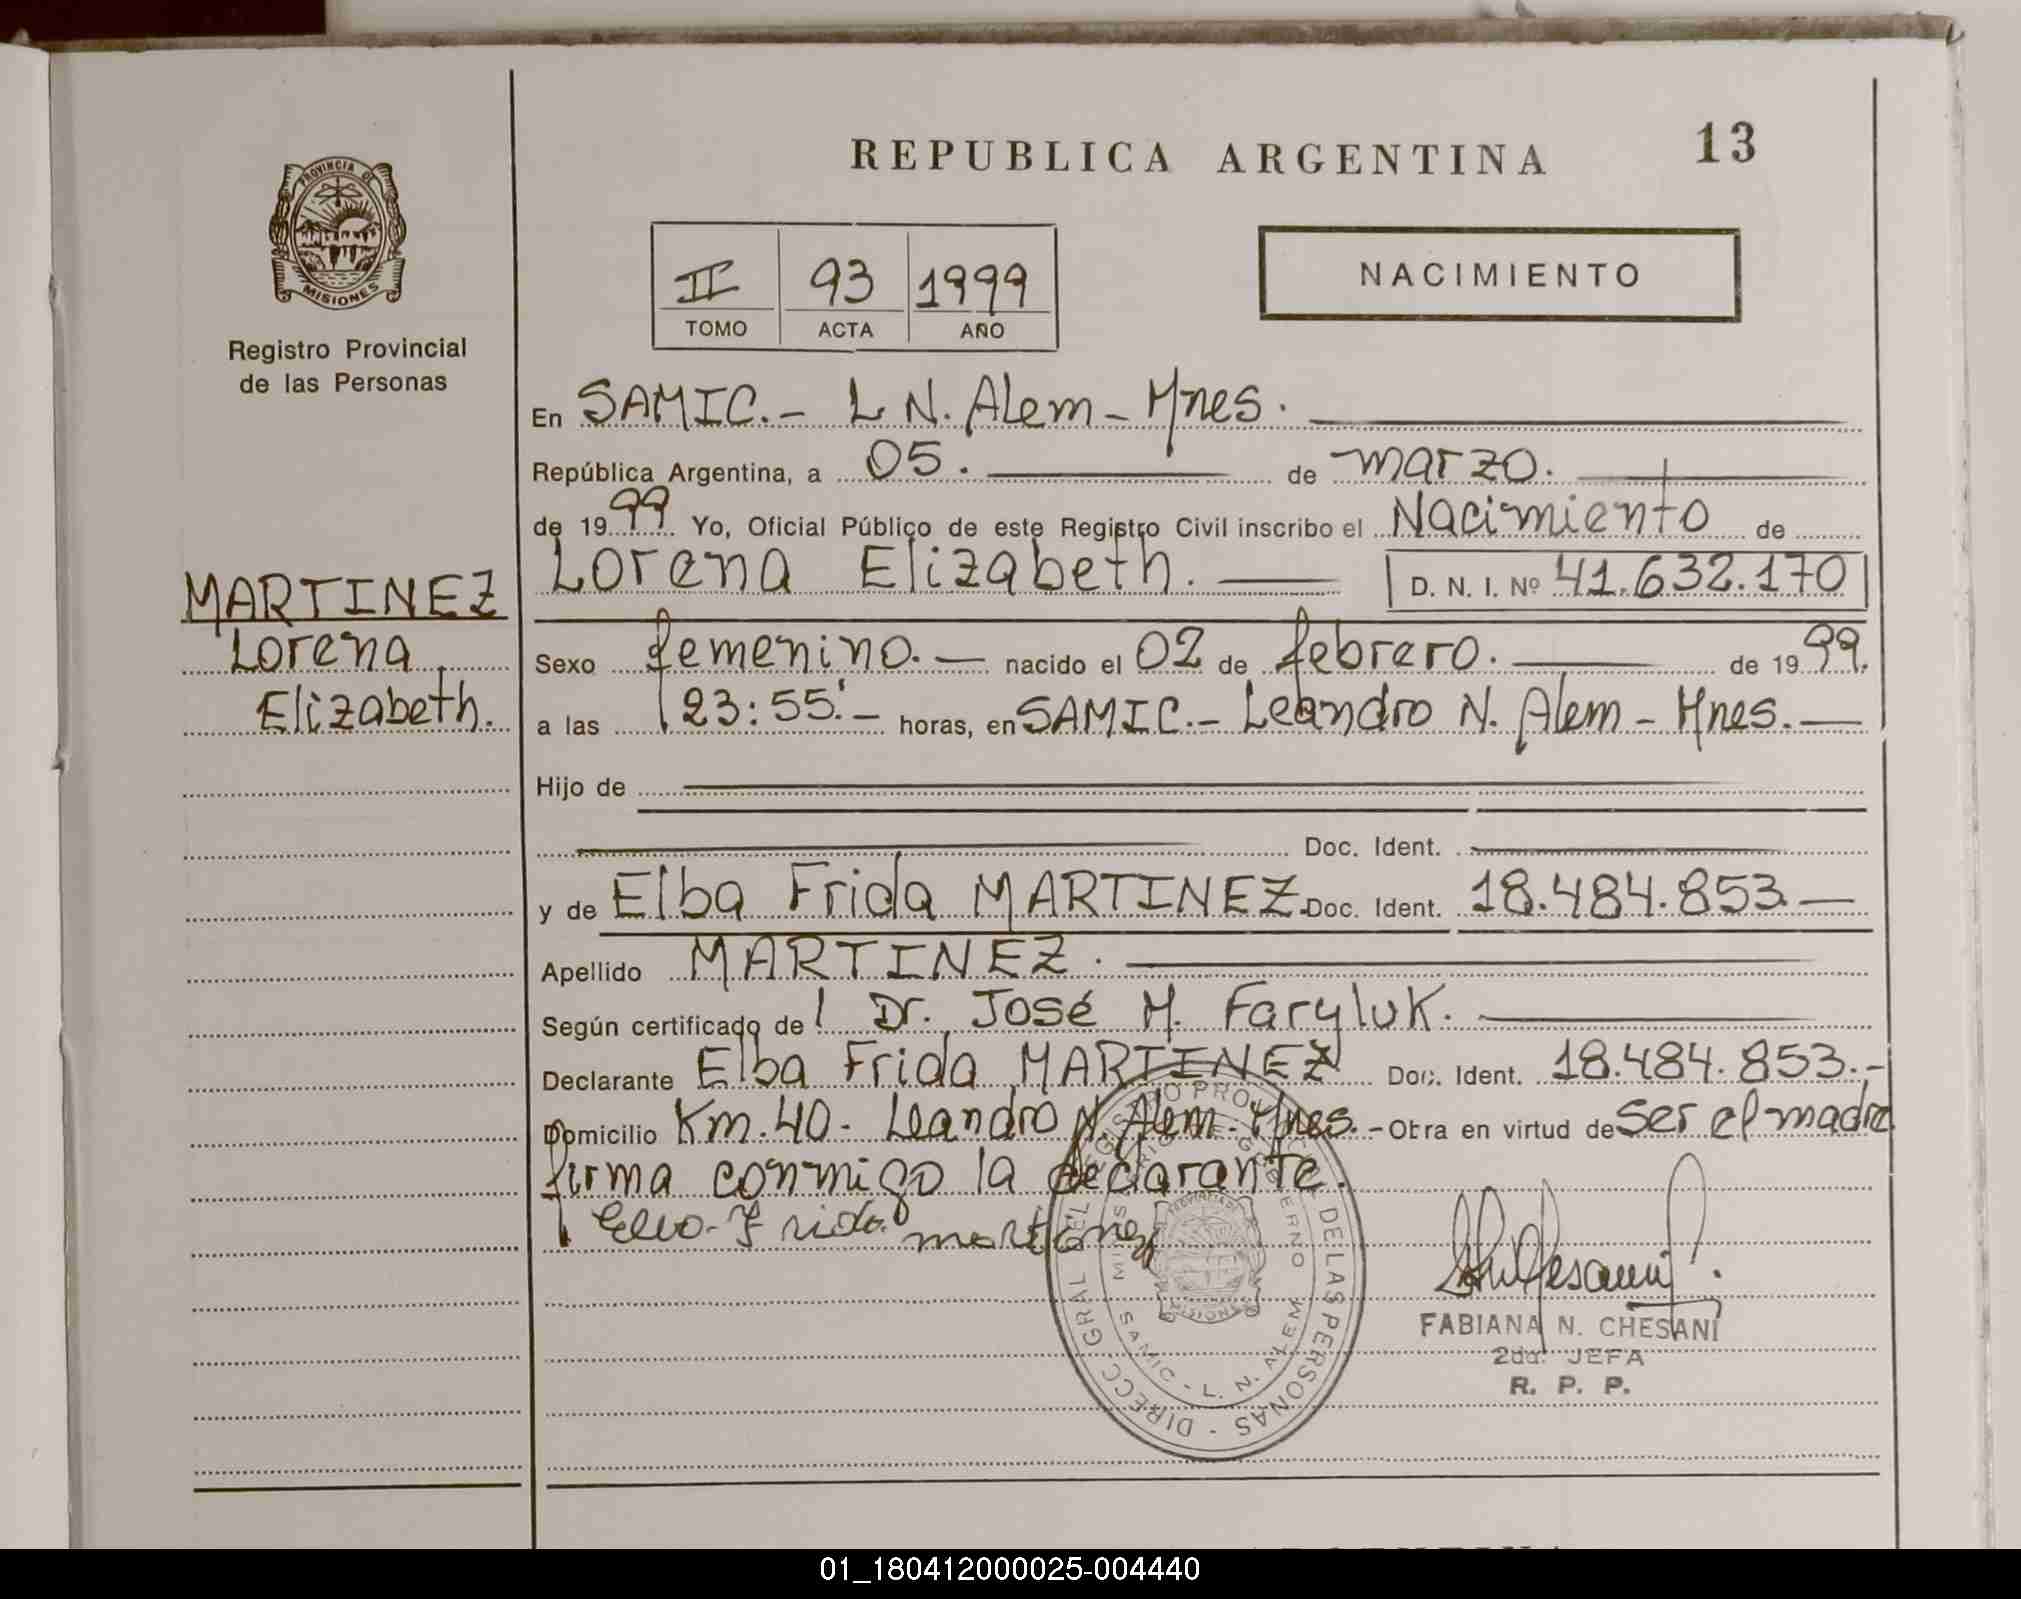 REPUBLICA ARGENTINA 13
PROVINCIA DE
MISIONES
Registro Provincial
de las Personas
II 93 1999
TOMO ACTA AÑO
NACIMIENTO
En SAMIC.- L N. Alem - Mnes.
República Argentina, a 05. de marzo.
de 1999 Yo, Oficial Público de este Registro Civil inscribo el Nacimiento de
Lorena Elizabeth. D. N. I. Nº 41.632.170
MARTINEZ
Lorena
Elizabeth.
Sexo femenino.- nacido el 02 de febrero. de 1999.
a las 23:55'.- horas, en SAMIC.- Leandro N. Alem - Mnes.-
Hijo de
Doc. Ident.
y de Elba Frida MARTINEZ. Doc. Ident. 18.484.853.-
Apellido MARTINEZ.
Según certificado de Dr. José M. Faryluk.
Declarante Elba Frida MARTINEZ Doc. Ident. 18.484.853.-
Domicilio Km. 40 - Leandro N. Alem - Mnes. - Obra en virtud de ser el madre
firma conmigo la declarante.
Elba Frida martinez
DIRECC GRAL DEL REGISTRO PROVINCIAL DE LAS PERSONAS
MINISTERIO DE GOBIERNO
SAMIC - L. N. ALEM
PROVINCIA DE
MISIONES
FABIANA N. CHESANI
2da. JEFA
R. P. P.
01_180412000025-004440